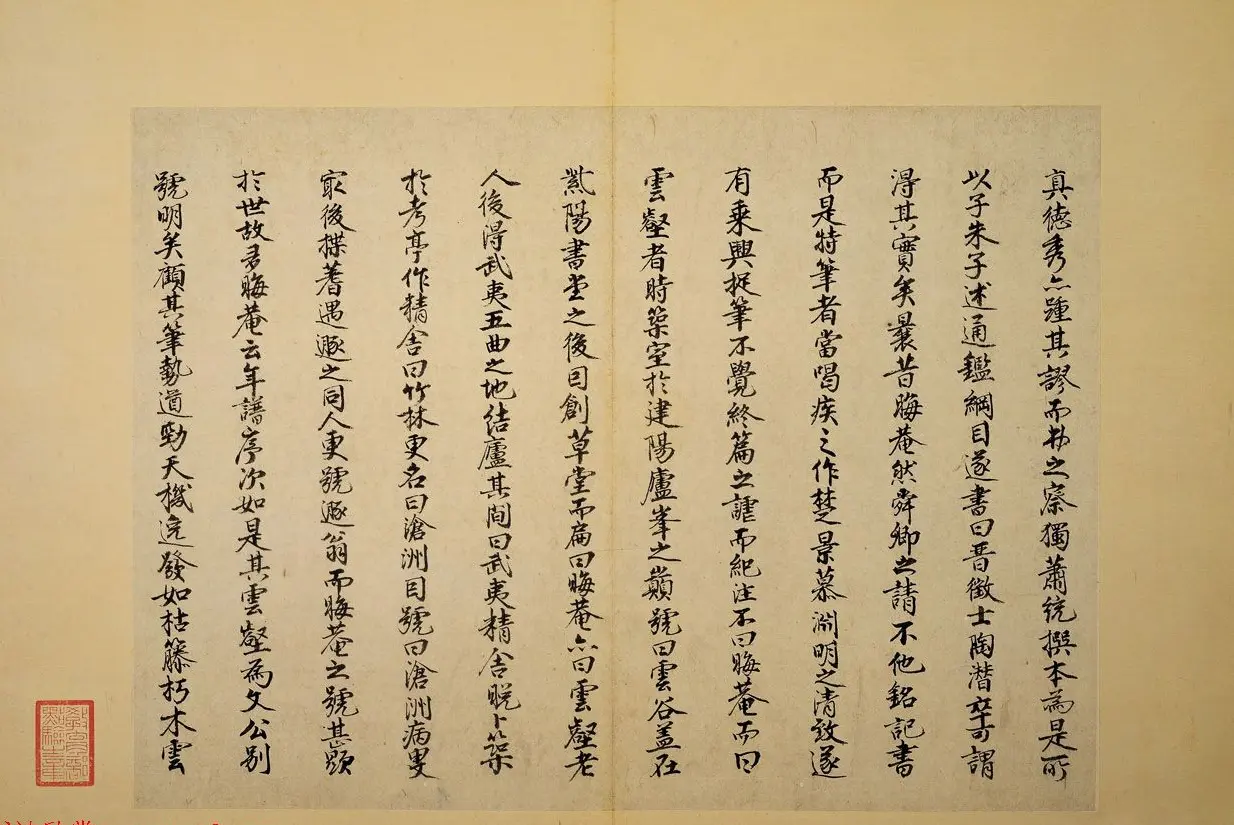 真德秀亦踵其謬而書之察獨蕭統撰本為是所
以子朱子述通鑑綱目遂書曰晉徵士陶潛卒可謂
淂其實矣曩昔晦菴然舜卿之請不他銘記書
而是特筆者當喝疾之作楚景慕淵明之清致遂
有乘興捉筆不覺終篇之謔而紀注不曰晦菴而曰
雲壑者時築室於建陽廬峯之巔號曰雲谷盖在
紫陽書堂之後因創草堂而扁曰晦菴亦曰雲壑老
人後淂武夷五曲之地結廬其間曰武夷精舍晚卜築
於考亭作精舍曰竹林更名曰滄洲因號曰滄洲病叟
最後揲蓍遇遯之同人更號遯翁而晦菴之號其顯
於世故多晦菴云年譜序次如是其雲壑為文公別
號明矣顧其筆勢遒勁天機逸發如枯籐朽木雲